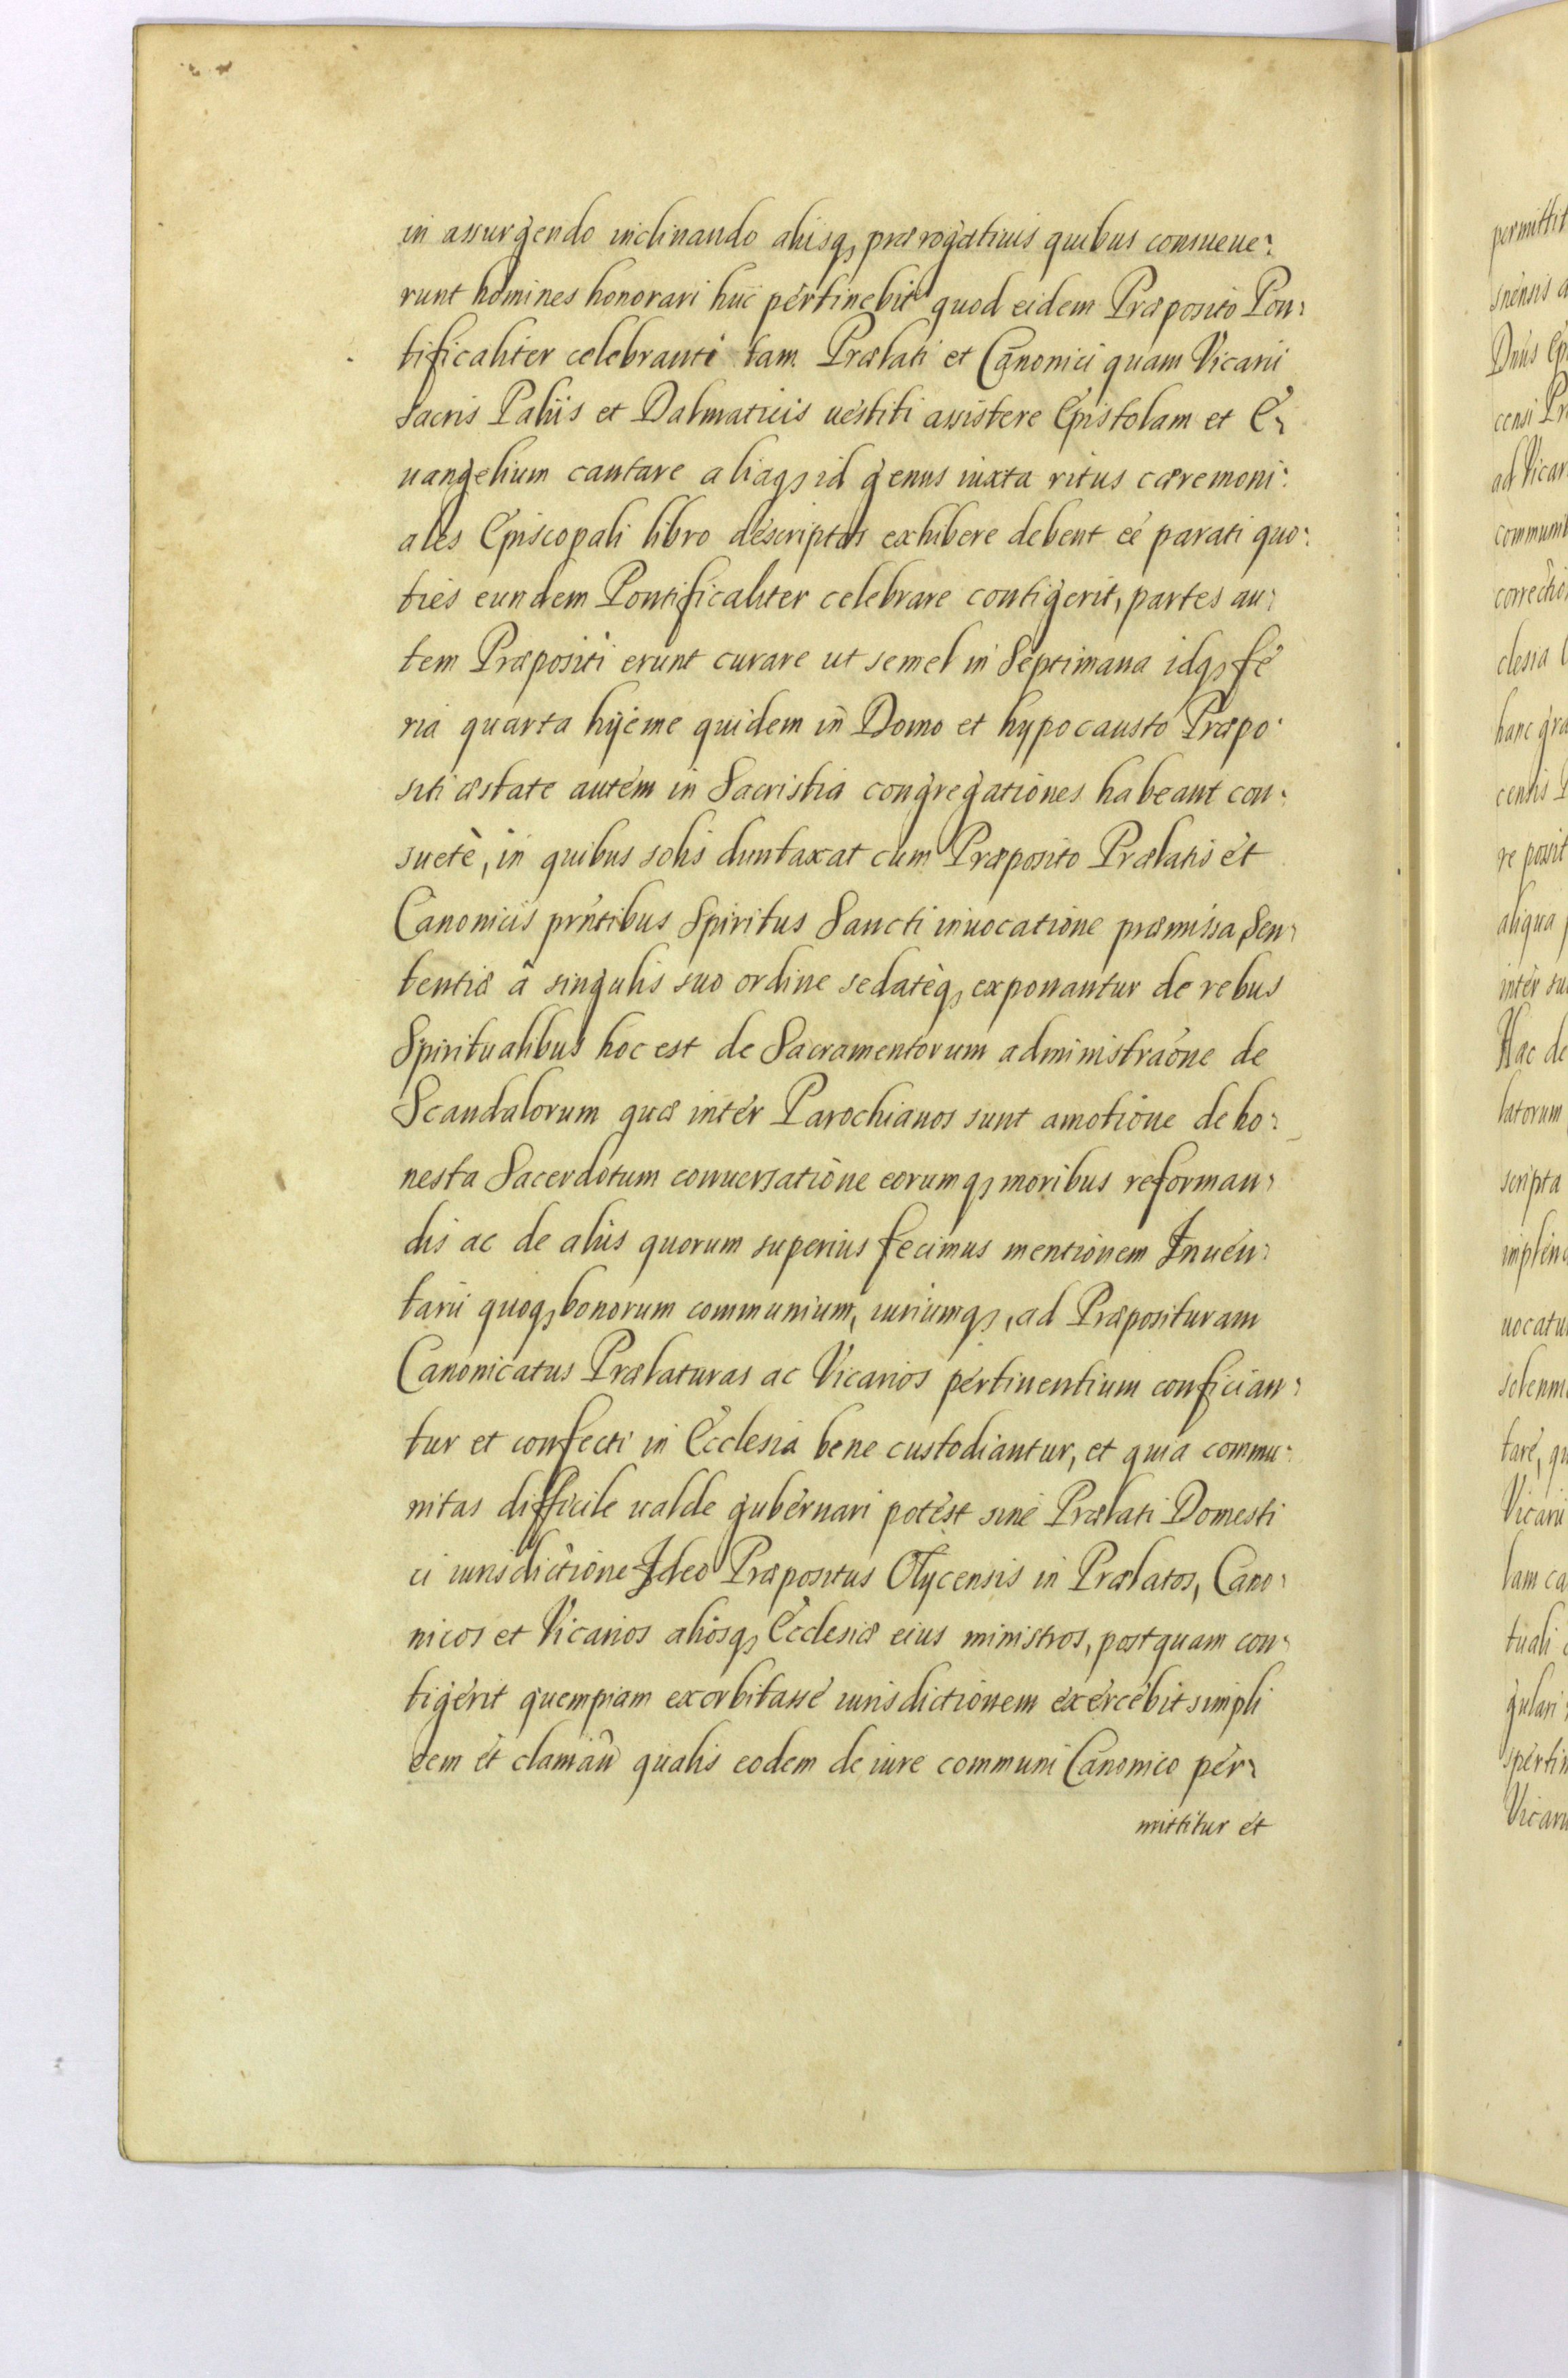 in assurgendo inclinando alijsq, prærogativis quibus consueue:
runt homines honorari huc pertinebit quod eidem Præposito Pon:
tificaliter celebranti tam Prælati et Canonici quam Vicarii
Sacris Paliis et Dalmaticis uestiti assistere Epistolam et E:
uangelium cantare aliaq, id genus iuxta ritus cæremoni:
ales Episcopali libro descriptos exhibere debent eé parati quo:
ties eundem Pontificaliter celebrare contigerit, partes au:
tem Præpositi erunt curare ut semel in Septimana idq, fe
ria quarta hijeme quidem in Domo et hypocausto Præpo:
siti æstate autem in Sacristia congregationes habeant con:
suetè, in quibus solis duntaxat cum Præposito Prælatis et
Canonicis prntibus Spiritus Sancti inuocatione præmissa Sen:
tentiæ â singulis suo ordine sedatèq, exponantur de rebus
Spiritualibus hoc est de Sacramentorum administraône de
Scandalorum quæ inter Parochianos sunt amotione de ho:
nesta Sacerdotum conuersatione eorumq, moribus reforman:
dis ac de aliis quorum superius fecimus mentionem Inuen:
tarii quoq, bonorum communium, iuriumq, ad Præposituram
Canonicatus Prælaturas ac Vicarios pertinentium confician:
tur et confecti in Ecclesia bene custodiantur, et quia commu:
nitas difficile ualde gubernari potest sine Prælati Domesti
ci iurisdictione Ideo Præpositus Olycensis in Prælatos, Cano:
nicos et Vicarios aliosq, Ecclesiæ eius ministros, postquam con:
tigerit quempiam exorbitasse iurisdictionem exercebit simpli
cem et qualis eodem de iure communi Canonico per:
mittitur et
permittit
Hac de
latorum
scripta
Vicarii
lam ca
tuali
gulari